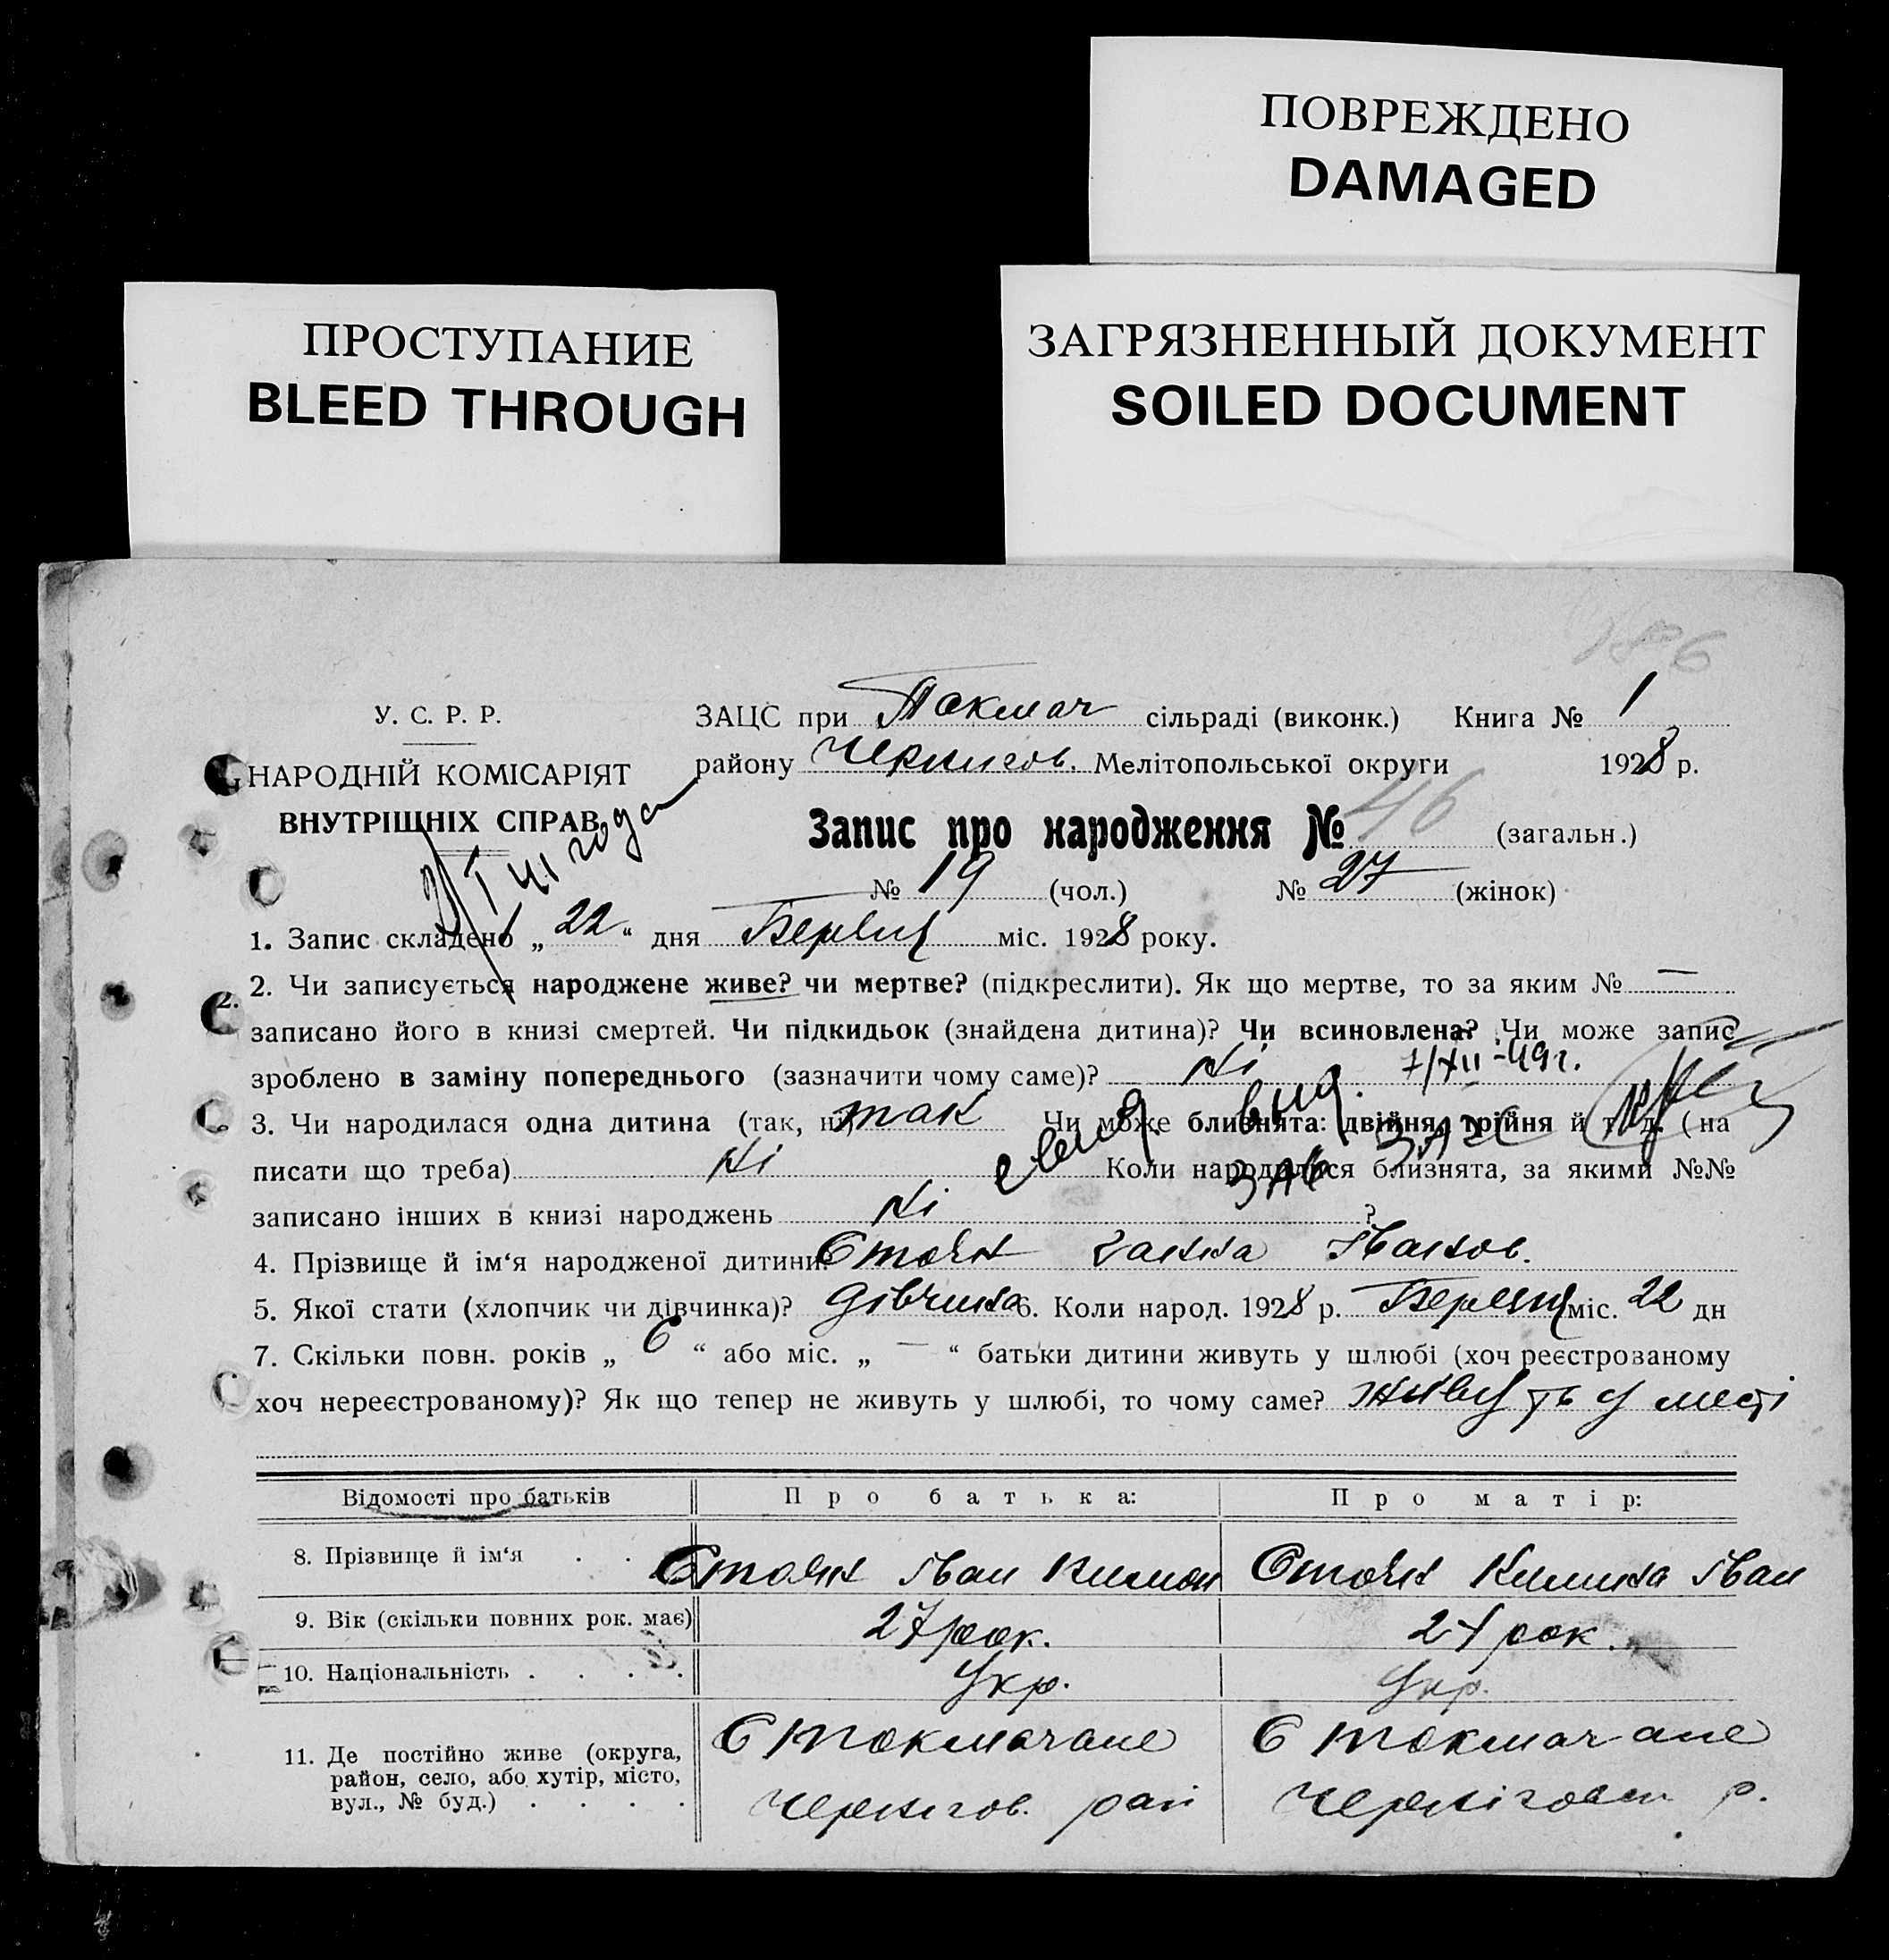 ПОВРЕЖДЕНО
DAMAGED
ПРОСТУПАНИЕ
BLEED THROUGH
ЗАГРЯЗНЕННЫЙ ДОКУМЕНТ
SOILED DOCUMENT
186
У. С. Р. Р.
НАРОДНІЙ КОМІСАРІЯТ
ВНУТРІШНІХ СПРАВ
ЗАЦС при Токмач сільраді (виконк.) Книга № 1
району Чернигов. Мелітопольської округи 1928 р.
Запис про народження № 46 (загальн.)
№ 19 (чол.) № 27 (жінок)
1. Запис складено „ 22 “ дня міс. 1928 року.
2. Чи записується народжене живе? чи мертве? (підкреслити). Як що мертве, то за яким № —
записано його в книзі смертей. Чи підкидьок (знайдена дитина)? Чи всиновлена? Чи може запис
зроблено в заміну попереднього (зазначити чому саме)? Ні 7/XII-49г.
3. Чи народилася одна дитина (так, ні) так Чи може близнята: двійня, трійня й т. д. (на
писати що треба) Ні Коли народилися близнята, за якими №№
записано інших в книзі народжень Ні ?
4. Прізвище й ім‘я народженої дитини? Стоян Ганна Іванов.
5. Якої стати (хлопчик чи дівчинка)? дівчина 6. Коли народ. 1928 р. Березня міс. 22 дн
7. Скільки повн. років „ 6 “ або міс. „ — “ батьки дитини живуть у шлюбі (хоч реєстрованому
хоч нереєстрованому)? Як що тепер не живуть у шлюбі, то чому саме? живуть у
Відомості про батьків Про батька: Про матір:
8. Прізвище й ім‘я . . Стоян Іван Стоян Килина Іван
9. Вік (скільки повних рок. має) 27 рок. рок.
10. Національність . . . . Укр. Укр.
11. Де постійно живе (округа,
район, село, або хутір, місто,
вул., № буд.) . . . .
С Токмачане С Токмачане
Чернигов. рай р.